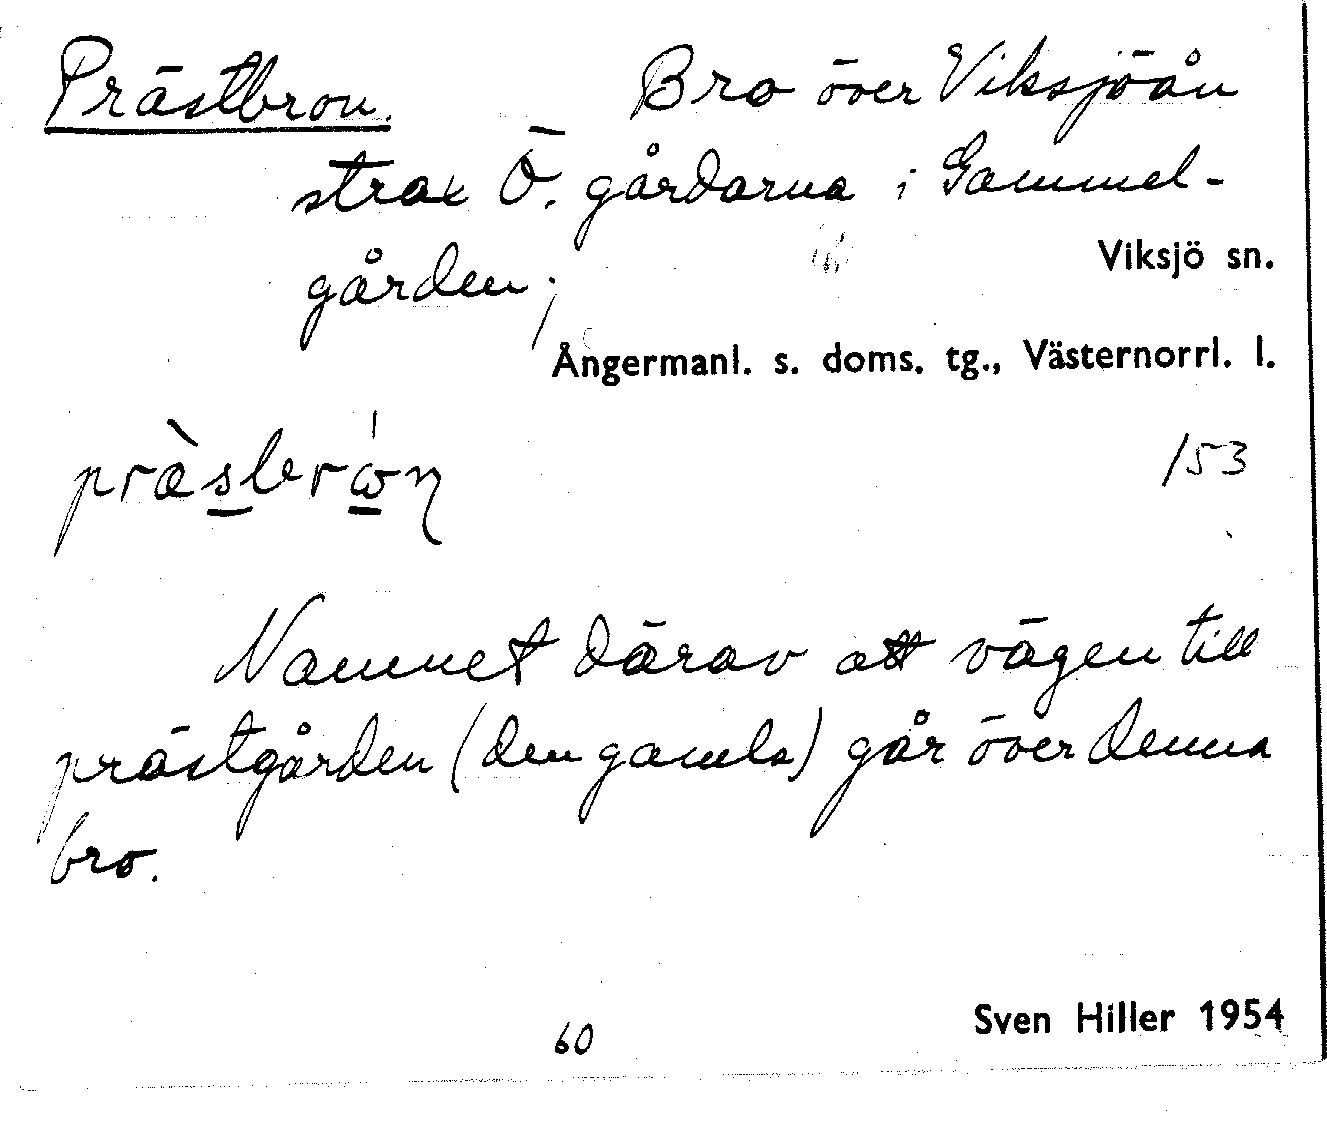 Prästbron. Bro över Viksjöån
strax Ö. gårdarna i Gammel-
gården;
Viksjö sn.
Ångermanl. s. doms. tg., Västernorrl. l.
153
Namnet därav att vägen till
prästgården (den gamla) går över denna
bro.
Sven Hiller 1954
60